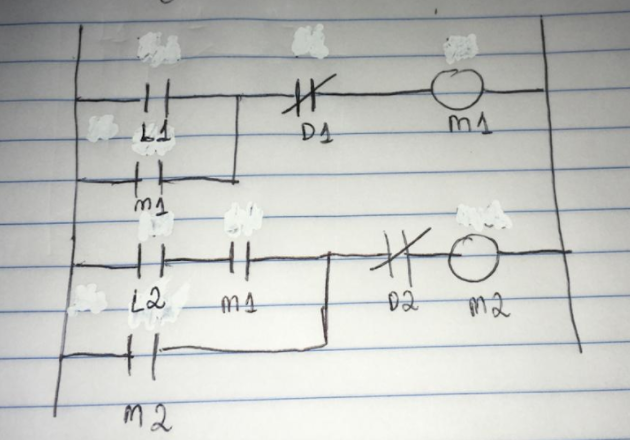 L1 D1 m1
m1
L2 m1 D2 m2
m2